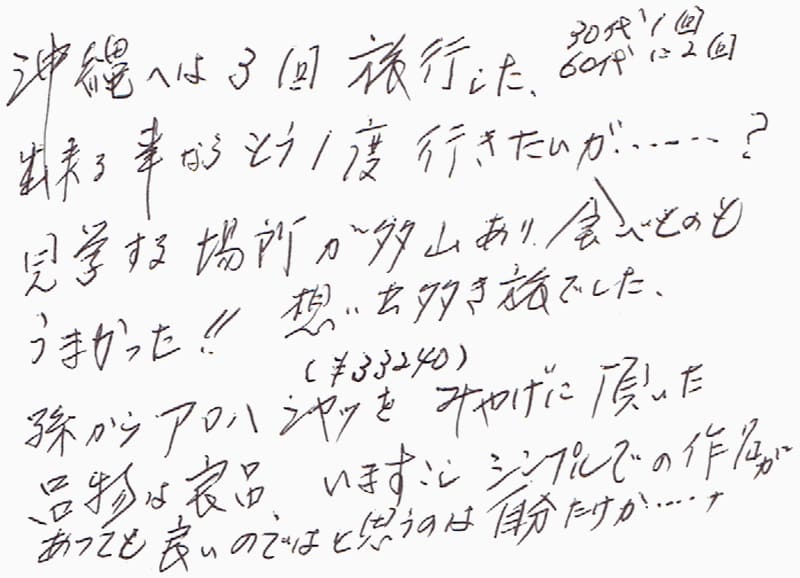 沖縄へは3回旅行した、
30代1回
60代に2回
出来る事ならもう1度行きたいが……?
見学する場所が多山あり、食べものも
うまかった!! 想い出多き旅でした、
(¥33240)
孫からアロハシャツをみやげに頂いた
品物は良品、いますこしシンプルでの作品が
あっても良いのではと思うのは自分だけか……、